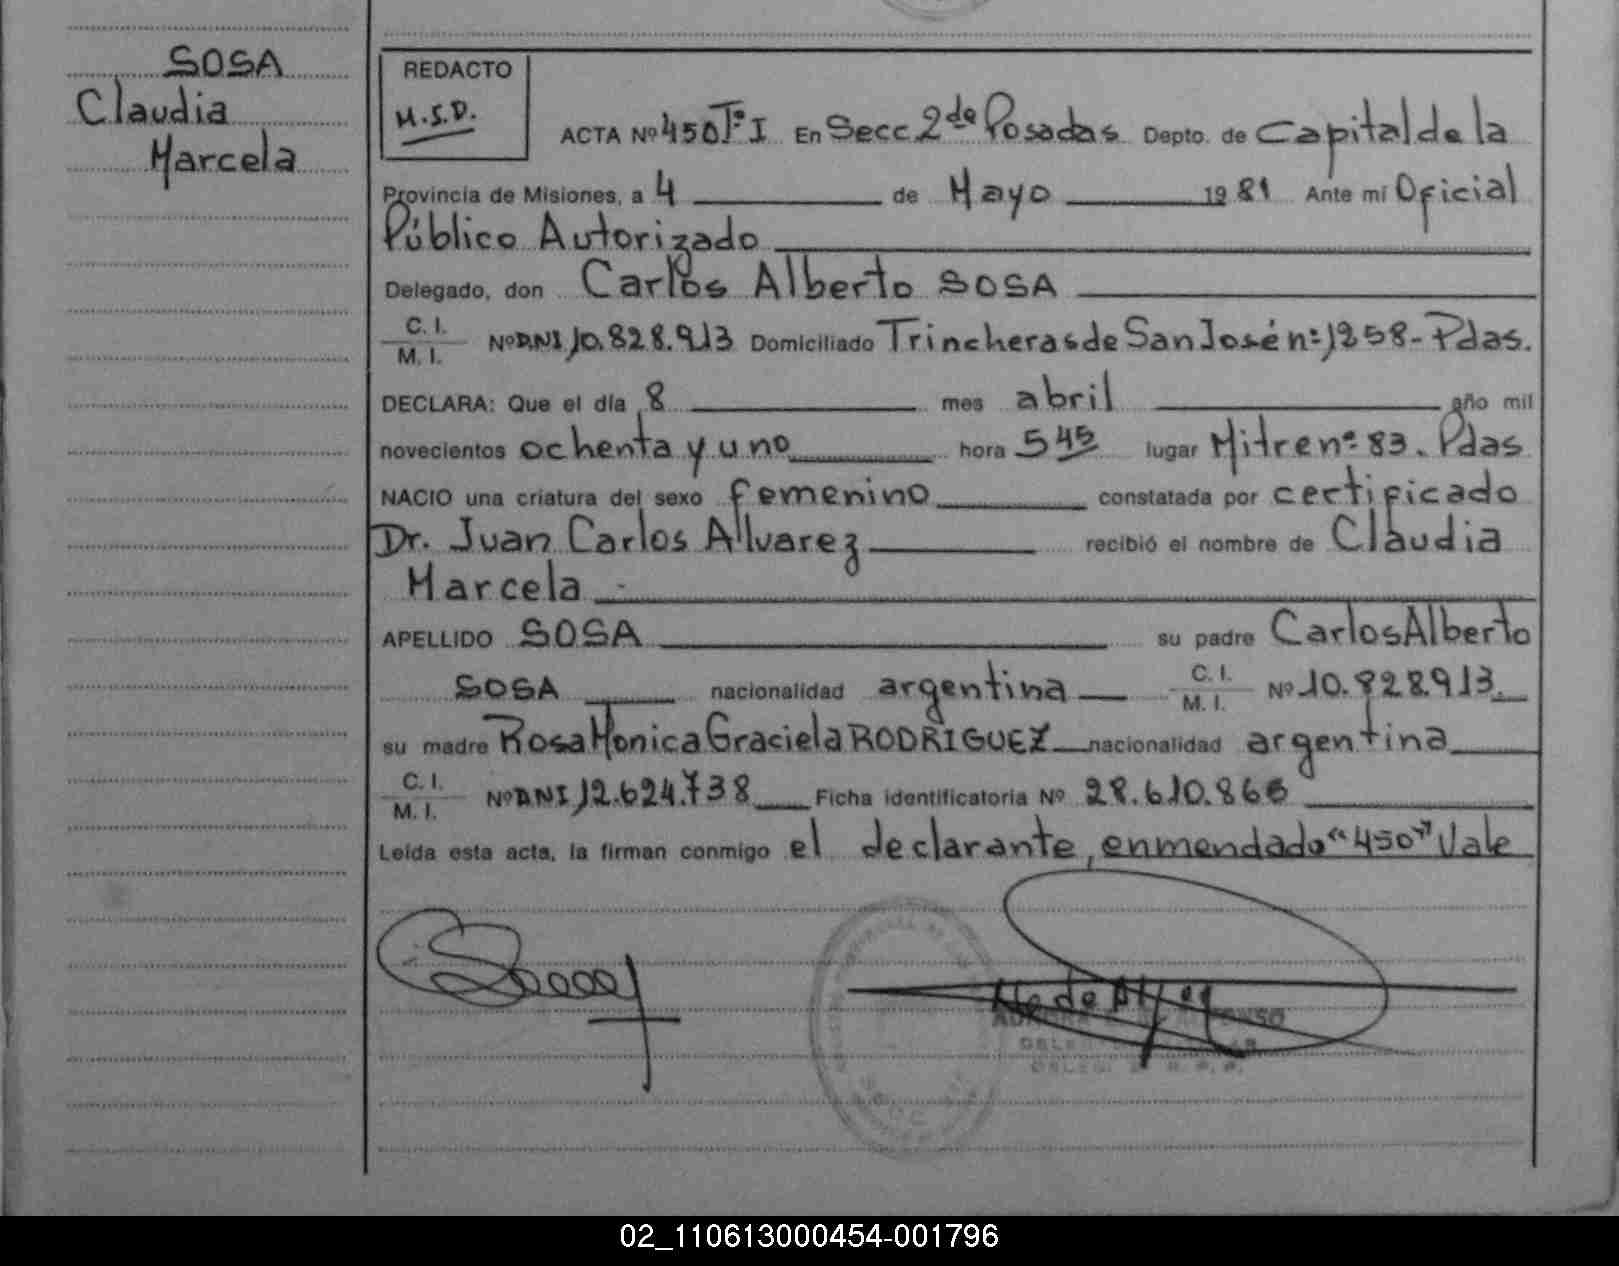 SOSA
Claudia
Marcela
REDACTO
M.S.D.
ACTA Nº 450 Tº I En Secc. 2da Posadas Depto. de Capital de la
Provincia de Misiones, a 4 de Mayo 1981 Ante mí Oficial
Público Autorizado
Delegado, don Carlos Alberto SOSA
C. I.
M. I.
Nº DNI 10.828.913 Domiciliado Trincheras de San José nº 1258 - Pdas.
DECLARA: Que el día 8 mes abril año mil
novecientos ochenta y uno hora 5 45 lugar Mitre nº 83. Pdas
NACIO una criatura del sexo femenino constatada por certificado
Dr. Juan Carlos Alvarez recibió el nombre de Claudia
Marcela
APELLIDO SOSA su padre Carlos Alberto
SOSA nacionalidad argentina C. I.
M. I. Nº 10.828.913.
su madre Rosa Monica Graciela RODRIGUEZ nacionalidad argentina
C. I.
M. I.
Nº DNI 12.624.738 Ficha identificatoria Nº 28.610.866
Leída esta acta, la firman conmigo el declarante, enmendado "450" Vale
02_110613000454-001796